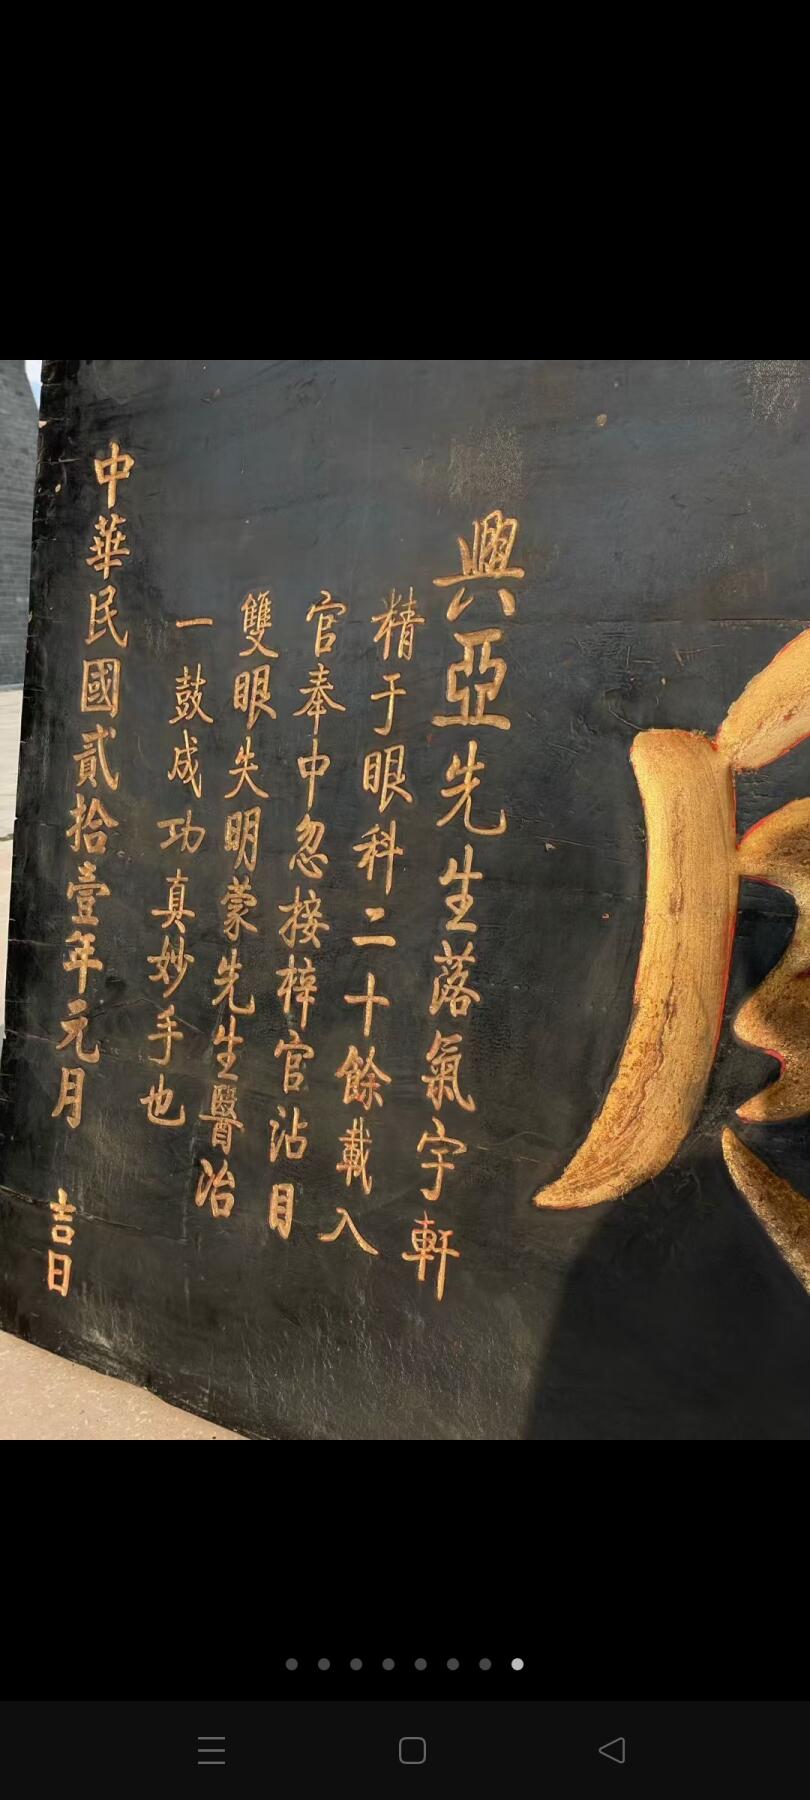 興亞先生落氣宇軒
精于眼科二十餘載入
官奉中忽接梓官沾目
雙眼失明蒙先生醫治
一鼓成功真妙手也
中華民國貳拾壹年元月 吉日